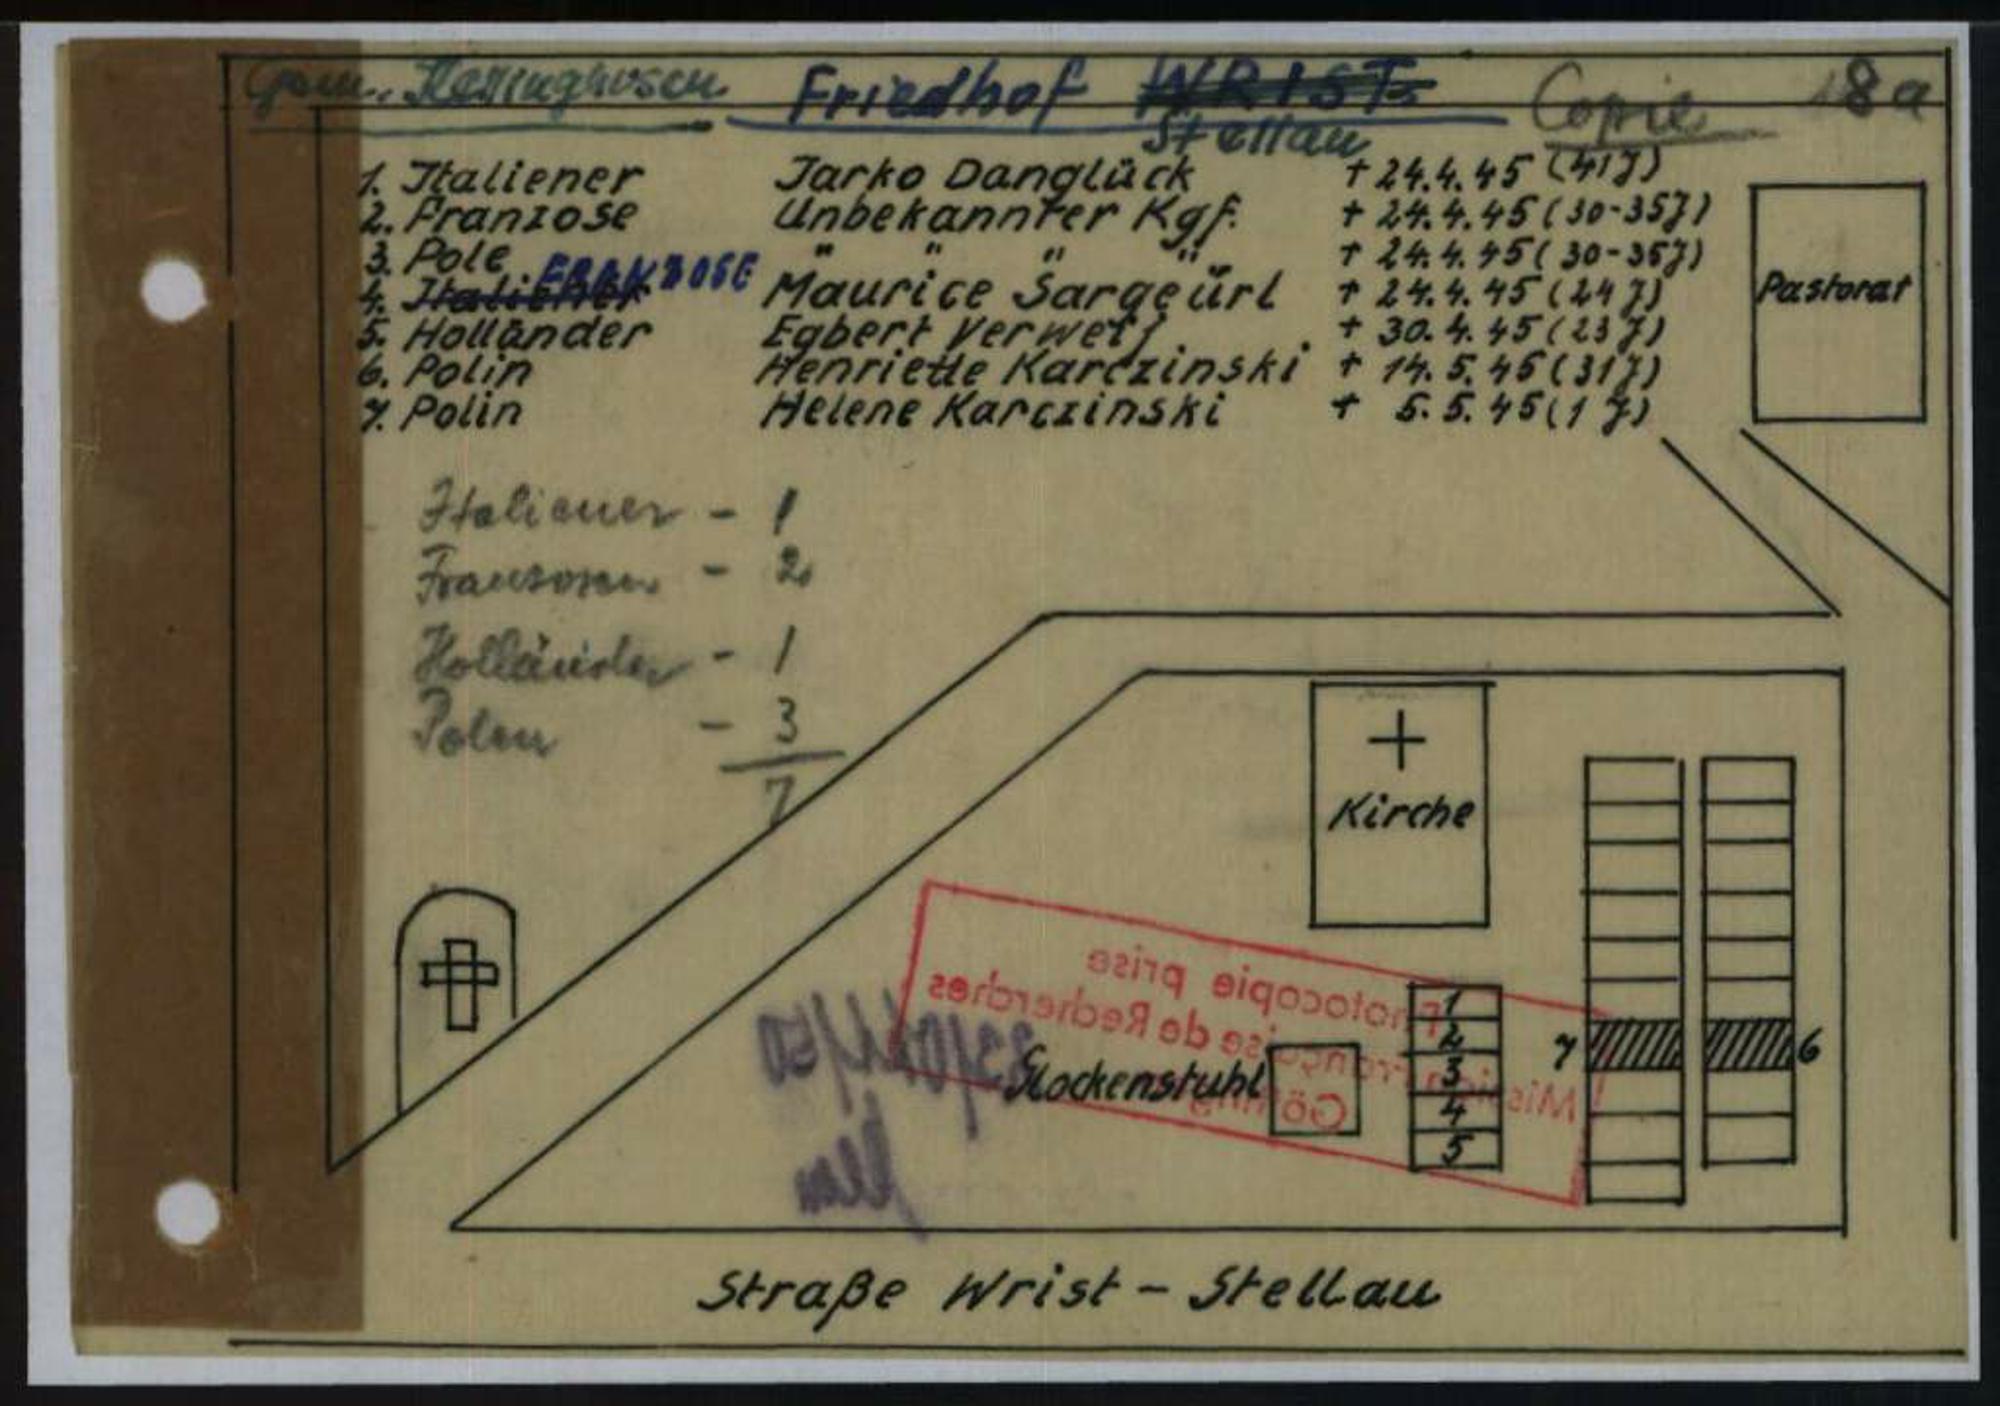 Friedhof WRIST
Stellau
Copie
8a
1. Italiener Jarko Danglück + 24.4.45 (41J)
2. Franzose Unbekannter Kgf. + 24.4.45 (30-35J)
3. Pole " " " " + 24.4.45 (30-35J)
4. Italiener FRANZOSE Maurice Sargeürl + 24.4.45 (24J)
5. Holländer Egbert Verweij + 30.4.45 (23J)
6. Polin Henriette Karczinski + 14.5.45 (31J)
7. Polin Helene Karczinski + 5.5.45 (1J)
Pastorat
Italiener - 1
Franzosen - 2
Holländer - 1
Polen - 3
7
Kirche
Photocopie prise
de Recherches
Glockenstuhl
1
2
3
4
5
7
6
Straße Wrist - Stellau